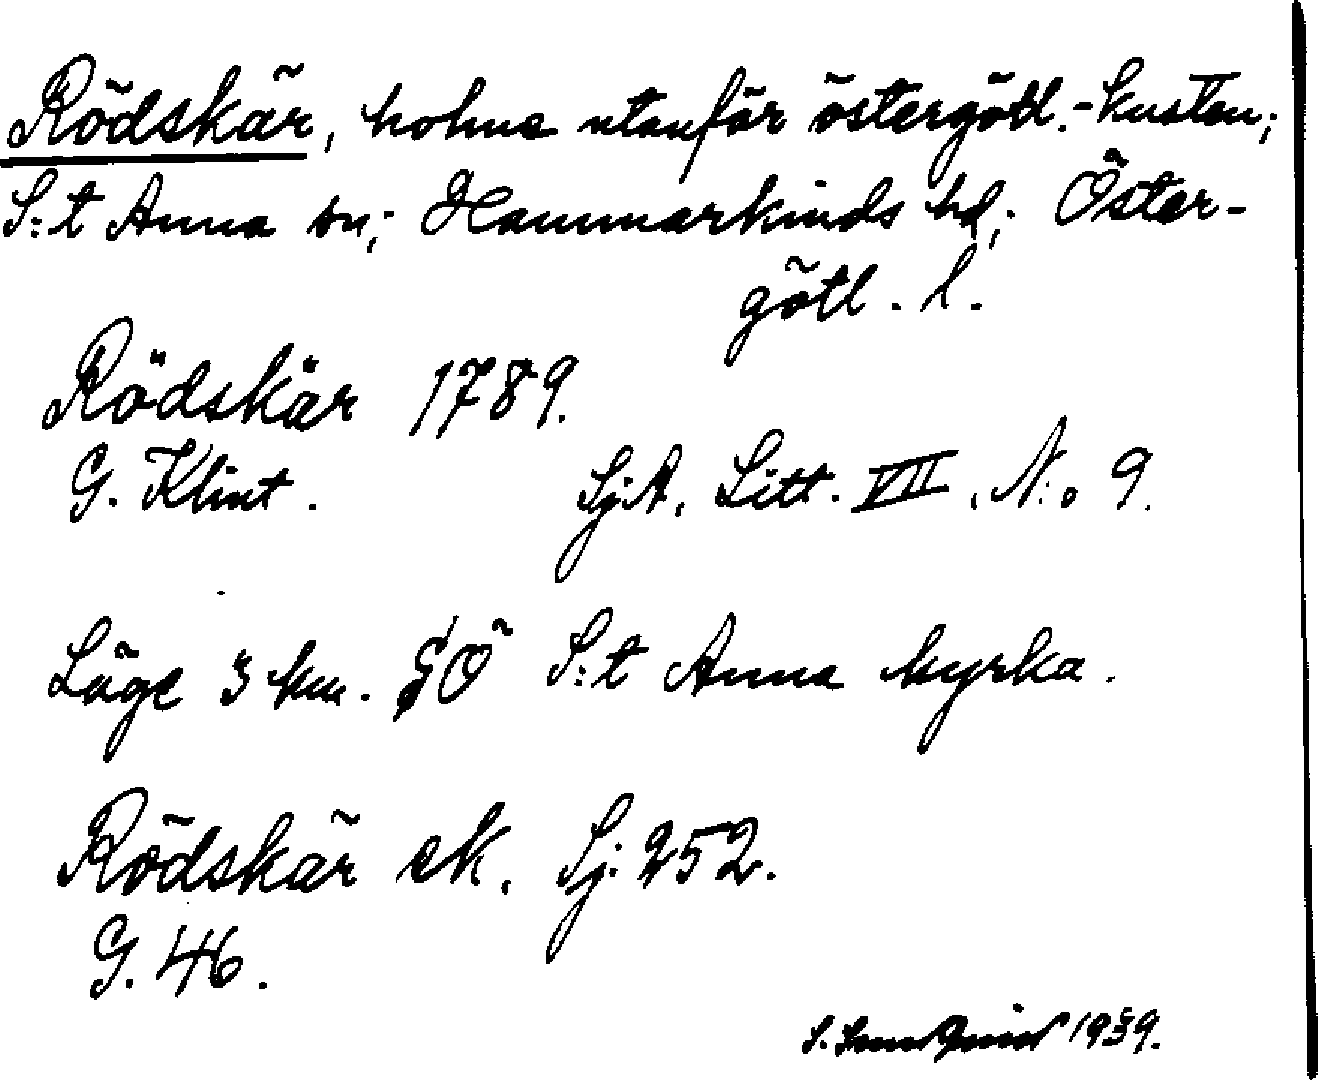 Rödskär, holme utanför östergötl.-kusten;
S:t Anna sn; Hammarkinds hd; Öster-
götl. l.
Rödskär 1789.
G. Klint. SjA, Litt. VII, N:o 9.
Läge 3 km. SÖ S:t Anna kyrka.
Rödskär ek. Sj. 252.
G. 46.
S. 1939.